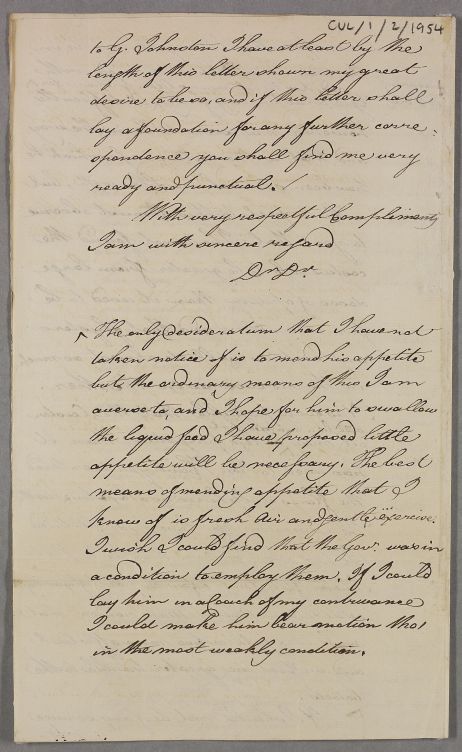 CUL/1/2/1954
to G. Johnston I have at least by the
length of this letter shown my great
desire to be so, and if this letter shall
lay a foundation for any further corre-
spondence you shall find me very
ready and punctual. /
With very respectful Compliments
I am with sincere regard
Dr. Dr.
^ The only desideratum that I have not
taken notice of is to mend his appetite
but the ordinary means of this I am
averse to, and I hope for him to swallow
the liquid food I have proposed little
appetite will be necessary. The best
means of mending appetite that I
know of is fresh air and gentle exercise.
I wish I could find that the Gov. was in
a condition to employ them. If I could
lay him in a Coach of my contrivance
I could make him bear motion tho'
in the most weakly condition.